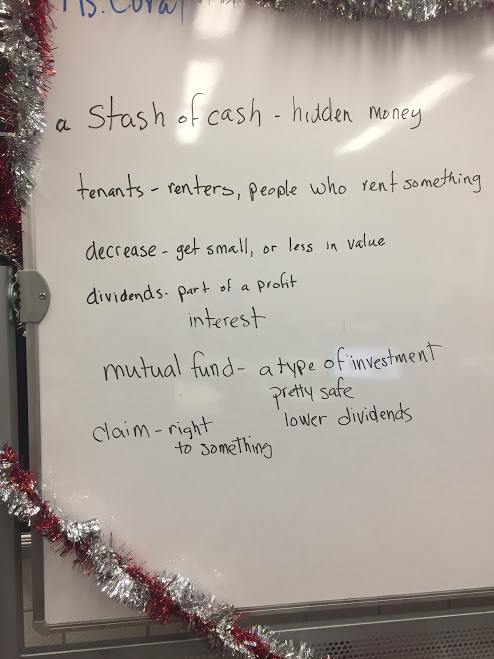 Ms. Coral
a Stash of cash - hidden money
tenants - renters, people who rent something
decrease - get small, or less in value
dividends - part of a profit
interest
mutual fund - a type of investment
pretty safe
lower dividends
claim - right
to something